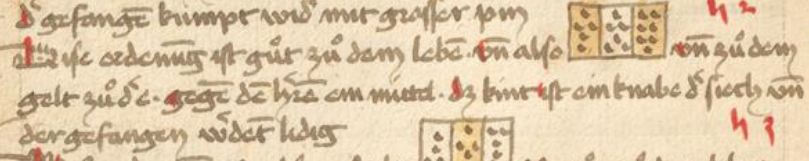 d̕ gefangē kumpt wid̕ mit grosser pin
Dise ordenūg ist gůt zů dem lebē · vn̄ also vn̄ zů dem
gelt zů d̕ e · gegē dē h̕rē ein mittel · dz kint ist ein knabe d̕ siech vn̄
der gefangen w̕det ledig